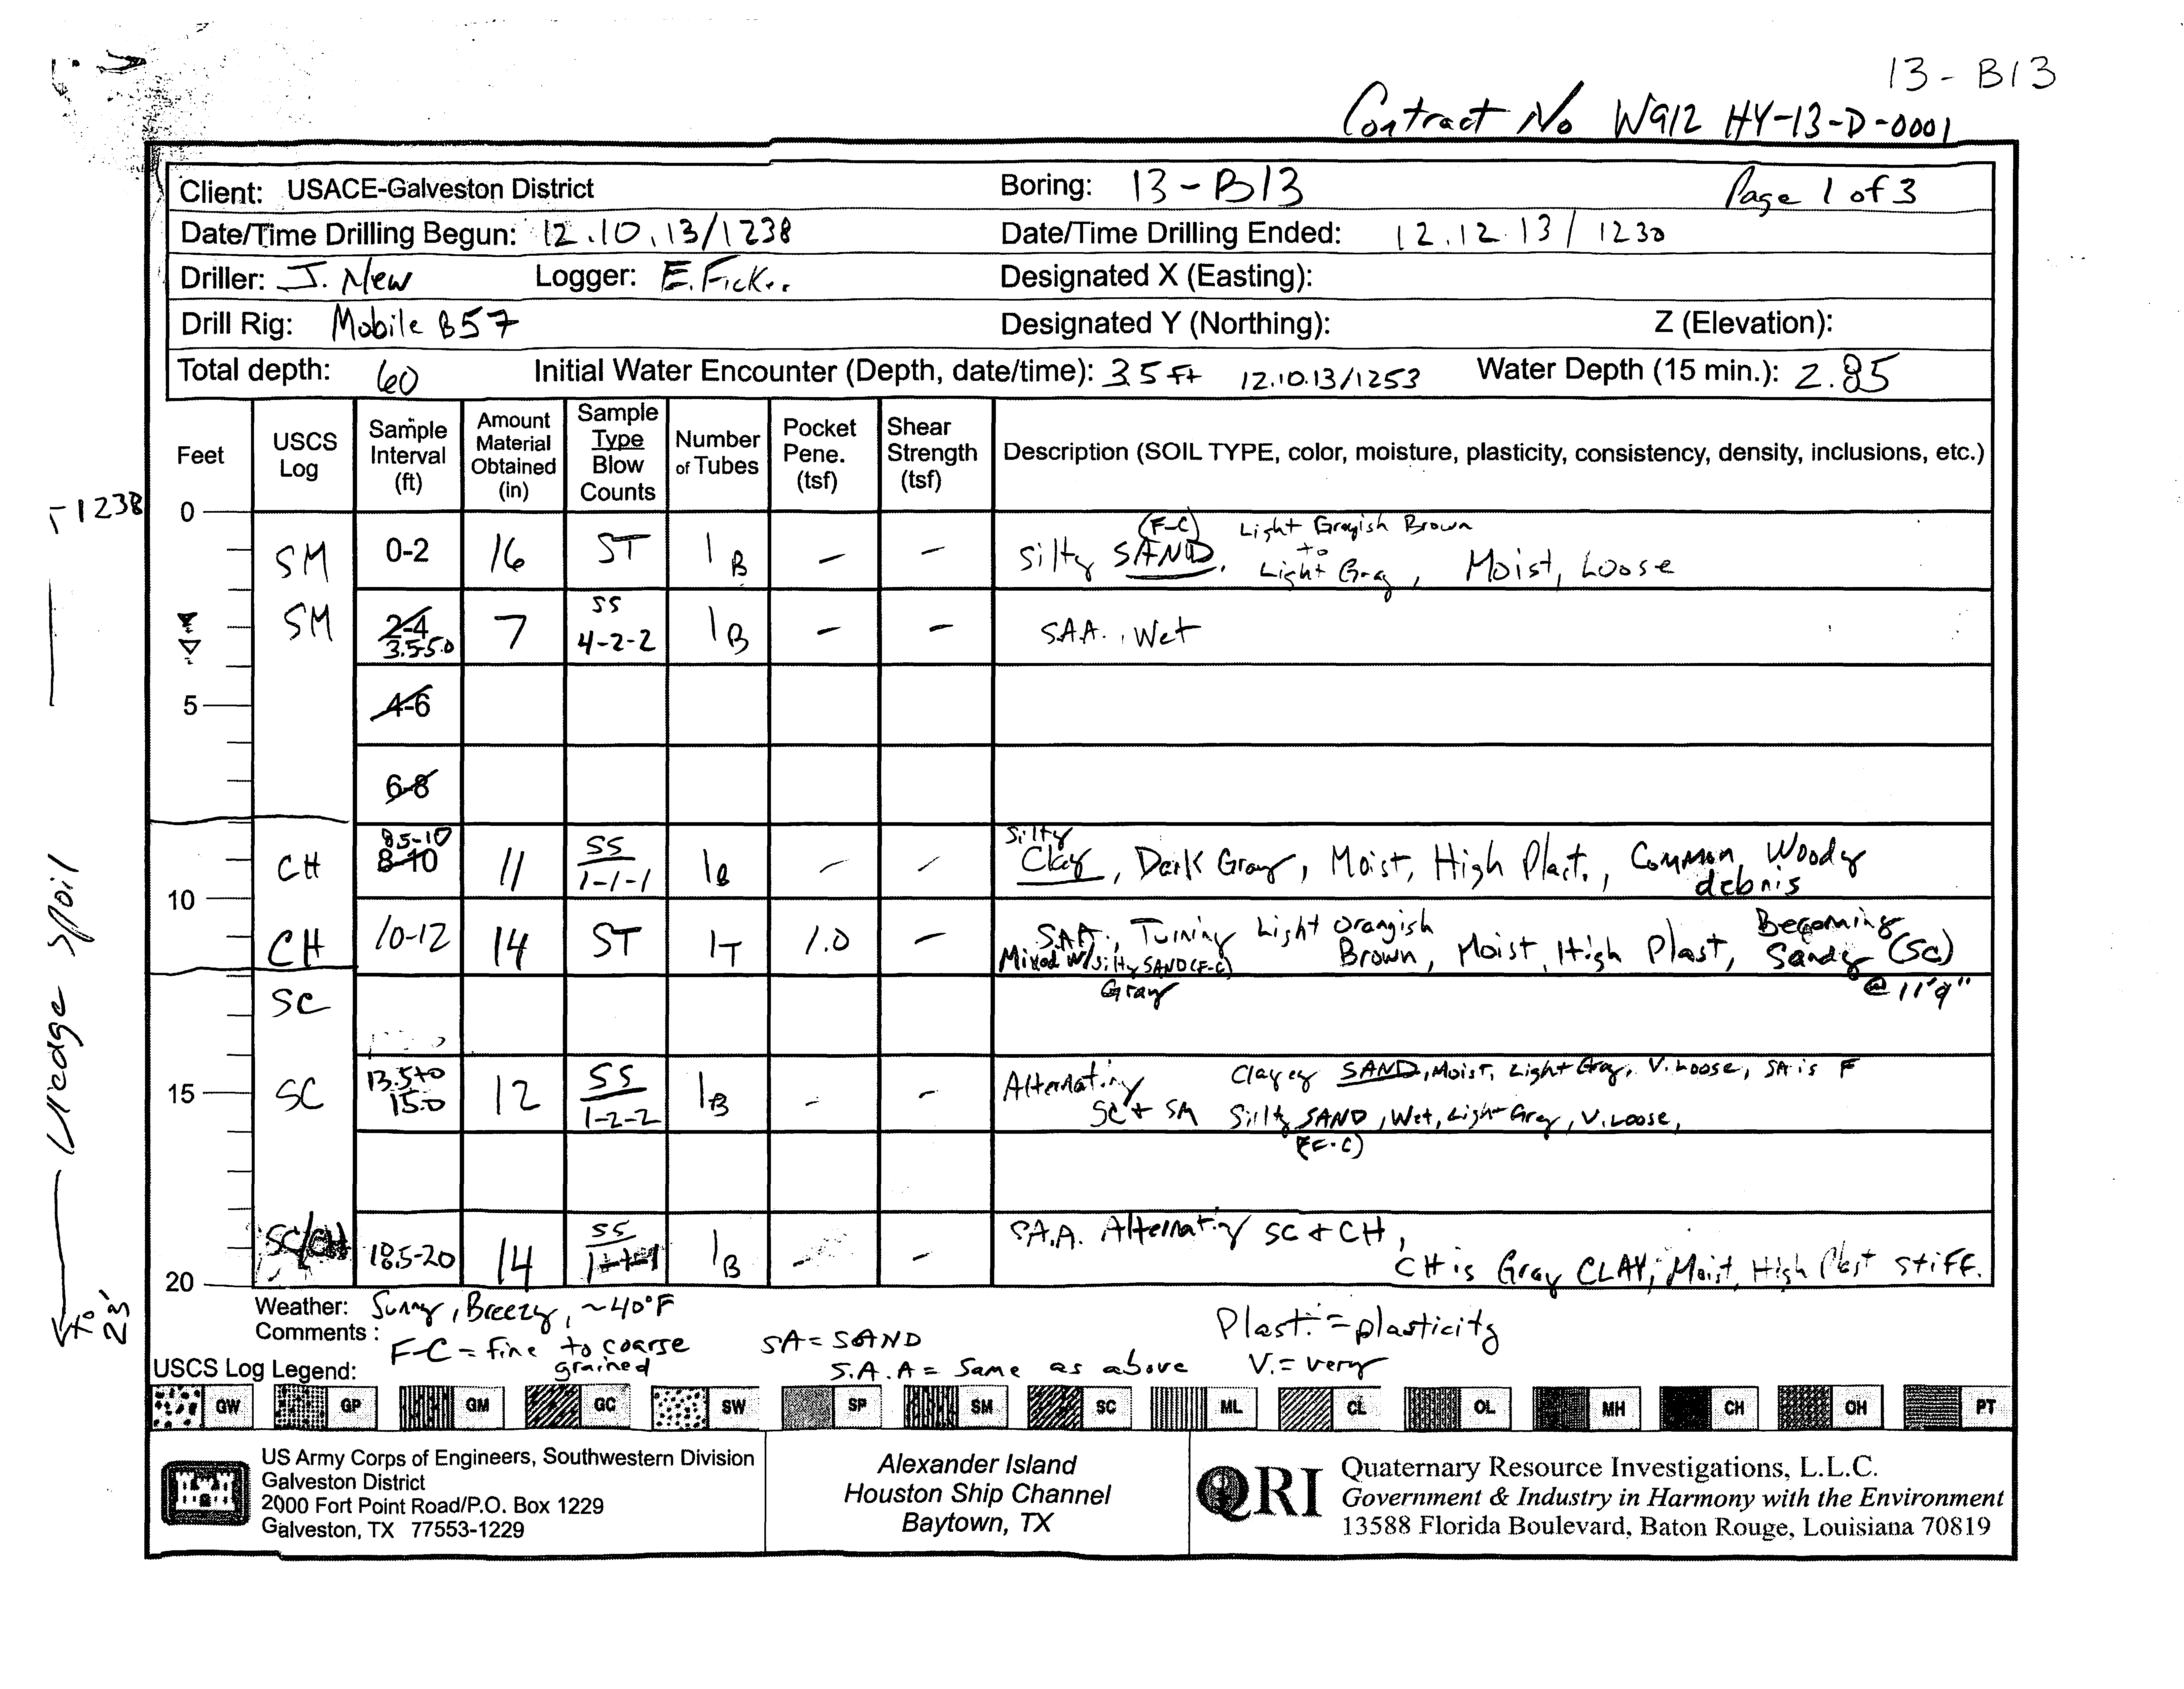 13-B13
Contract No W912 HY-13-D-0001
Client: USACE-Galveston District Boring: 13-B13 Page 1 of 3
Date/Time Drilling Begun: 12.10.13/1238 Date/Time Drilling Ended: 12.12.13/1230
Driller: J. New Logger: E. Fick.. Designated X (Easting):
Drill Rig: Mobile B57 Designated Y (Northing): Z (Elevation):
Total depth: 60 Initial Water Encounter (Depth, date/time): 3.5 ft 12.10.13/1253 Water Depth (15 min.): 2.85
Feet USCS Log Sample Interval (ft) Amount Material Obtained (in) Sample Type Blow Counts Number of Tubes Pocket Pene. (tsf) Shear Strength (tsf) Description (SOIL TYPE, color, moisture, plasticity, consistency, density, inclusions, etc.)
1238 0
SM 0-2 16 ST 1B – – Silty SAND (F-C), Light Grayish Brown to Light Gray, Moist, Loose
SM 2-4 3.5-5.0 7 SS 4-2-2 1B – – S.A.A., Wet
5 4-6
6-8
CH 8.5-10 8-10 11 SS 1-1-1 1B – – Silty Clay, Dark Gray, Moist, High Plast., Common Woody debris
10
CH 10-12 14 ST 1T 1.0 – S.A.A., Turning Light Orangish Brown, Moist, High Plast, Becoming Sandy (SC) @ 11'9"
Mixed w/silty SAND (F-C) Gray
SC
15 SC 13.5 to 15.0 12 SS 1-2-2 1B – – Alternating SC + SM Clayey SAND, Moist, Light Gray, V. Loose, SA is F
Silty SAND, Wet, Light Gray, V. Loose,
(F-C)
SC/CH 18.5-20 14 SS 1B – – S.A.A. Alternating SC + CH,
CH is Gray CLAY, Moist, High Plast Stiff.
20
Dredge spoil to 23'
Weather: Sunny, Breezy, ~40°F
Comments: F-C = fine to coarse grained SA = SAND Plast. = plasticity
S.A.A = Same as above V. = very
USCS Log Legend:
GW GP GM GC SW SP SM SC ML CL OL MH CH OH PT
US Army Corps of Engineers, Southwestern Division
Galveston District
2000 Fort Point Road/P.O. Box 1229
Galveston, TX 77553-1229
Alexander Island
Houston Ship Channel
Baytown, TX
QRI
Quaternary Resource Investigations, L.L.C.
Government & Industry in Harmony with the Environment
13588 Florida Boulevard, Baton Rouge, Louisiana 70819